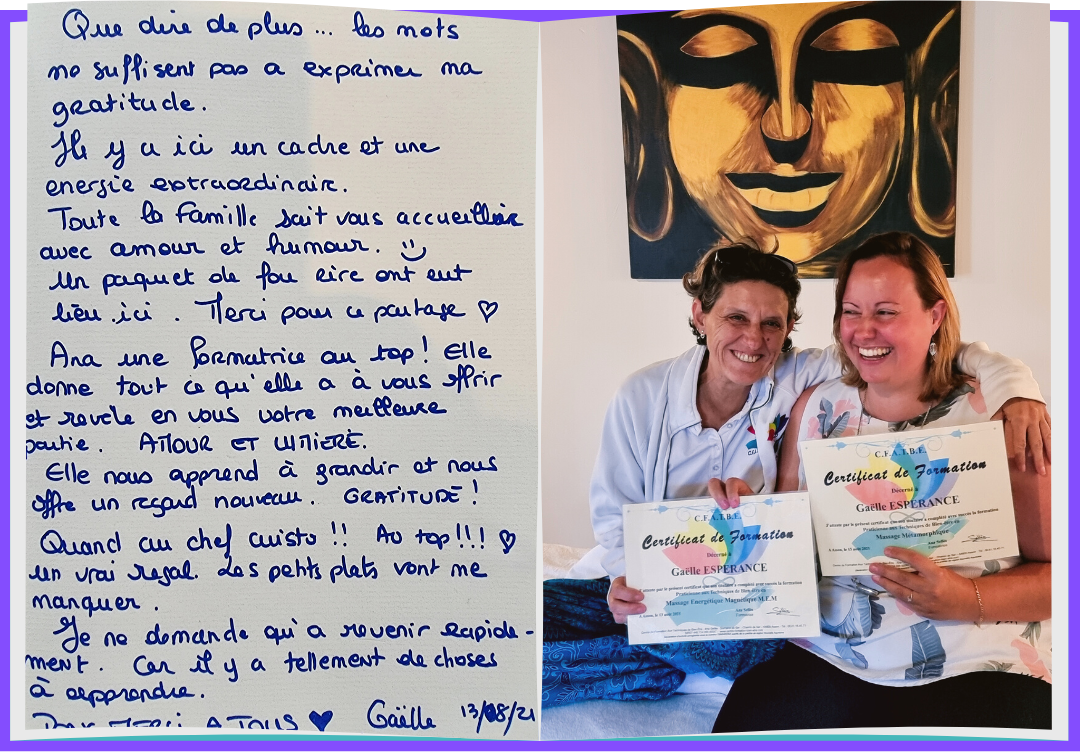 Que dire de plus ... les mots
ne suffisent pas a exprimer ma
gratitude.
Ils y a ici un cadre et une
energie extraordinaire.
Toute la famille sait vous accueillir
avec amour et humour.
Un paquet de fou rire ont eut
lieu ici . Merci pour ce partage ♡
Ana une formatrice au top ! Elle
donne tout ce qu'elle a à vous offrir
et revele en vous votre meilleure
partie. AMOUR ET LUMIERE.
Elle nous apprend à grandir et nous
offre un regard nouveau. GRATITUDE !
Quand au chef cuisto !! Au top !!! ♡
un vrai regal. Les petits plats vont me
manquer .
Je ne demande qu'a revenir rapide-
ment. Car il y a tellement de choses
à apprendre.
MERCI A TOUS ♥ Gaëlle 13/08/21
C.F.A.T.B.E.
Certificat de Formation
Décerné à
Gaëlle ESPERANCE
Praticienne aux Techniques de Bien-être en
Massage Energétique Magnétique M.E.M
C.F.A.T.B.E.
Certificat de Formation
Décerné à
Gaëlle ESPERANCE
Praticienne aux Techniques de Bien-être en
Massage Métamorphique